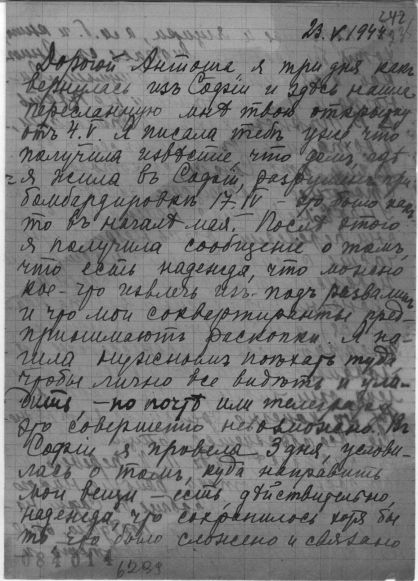 242
23.V.1944
Дорогой Антоша я три дня как
вернулась изъ Софіи и здѣсь нашла
пересланную мнѣ твою открытку
отъ 4.V Я писала тебѣ уже что
получила извѣстіе, что домъ, гдѣ
я жила въ Софіи, разрушенъ при
бомбардировкѣ 17.IV – это было какъ
то въ началѣ мая. Послѣ этого
я получила сообщеніе о томъ,
что есть надежда, что можно
кое-что извлечь изъ-подъ развалинъ
и что мои соквартиранты пред-
принимаютъ раскопки. Я на-
шла нужнымъ поѣхать туда
чтобы лично все видѣть и ула-
дить, – по почтѣ или телеграфу
это совершенно невозможно. Въ
Софіи я провела 3 дня, услови-
лась о томъ, куда направить
мои вещи – есть дѣйствительно
надежда, что сохранилось хотя бы
то что было сложено и связано